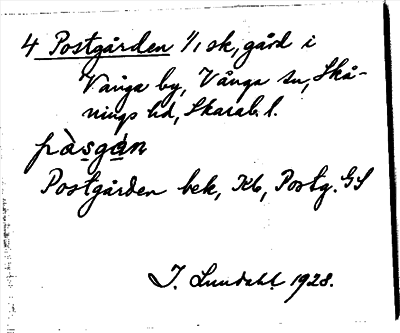 4 Postgården 1/1 sk, gård i
Vånga by, Vånga sn, Skå-
nings hd, Skarab. l.
pàsgan
Postgården bek, Kb, Postg. GS
I. Lundahl 1928.